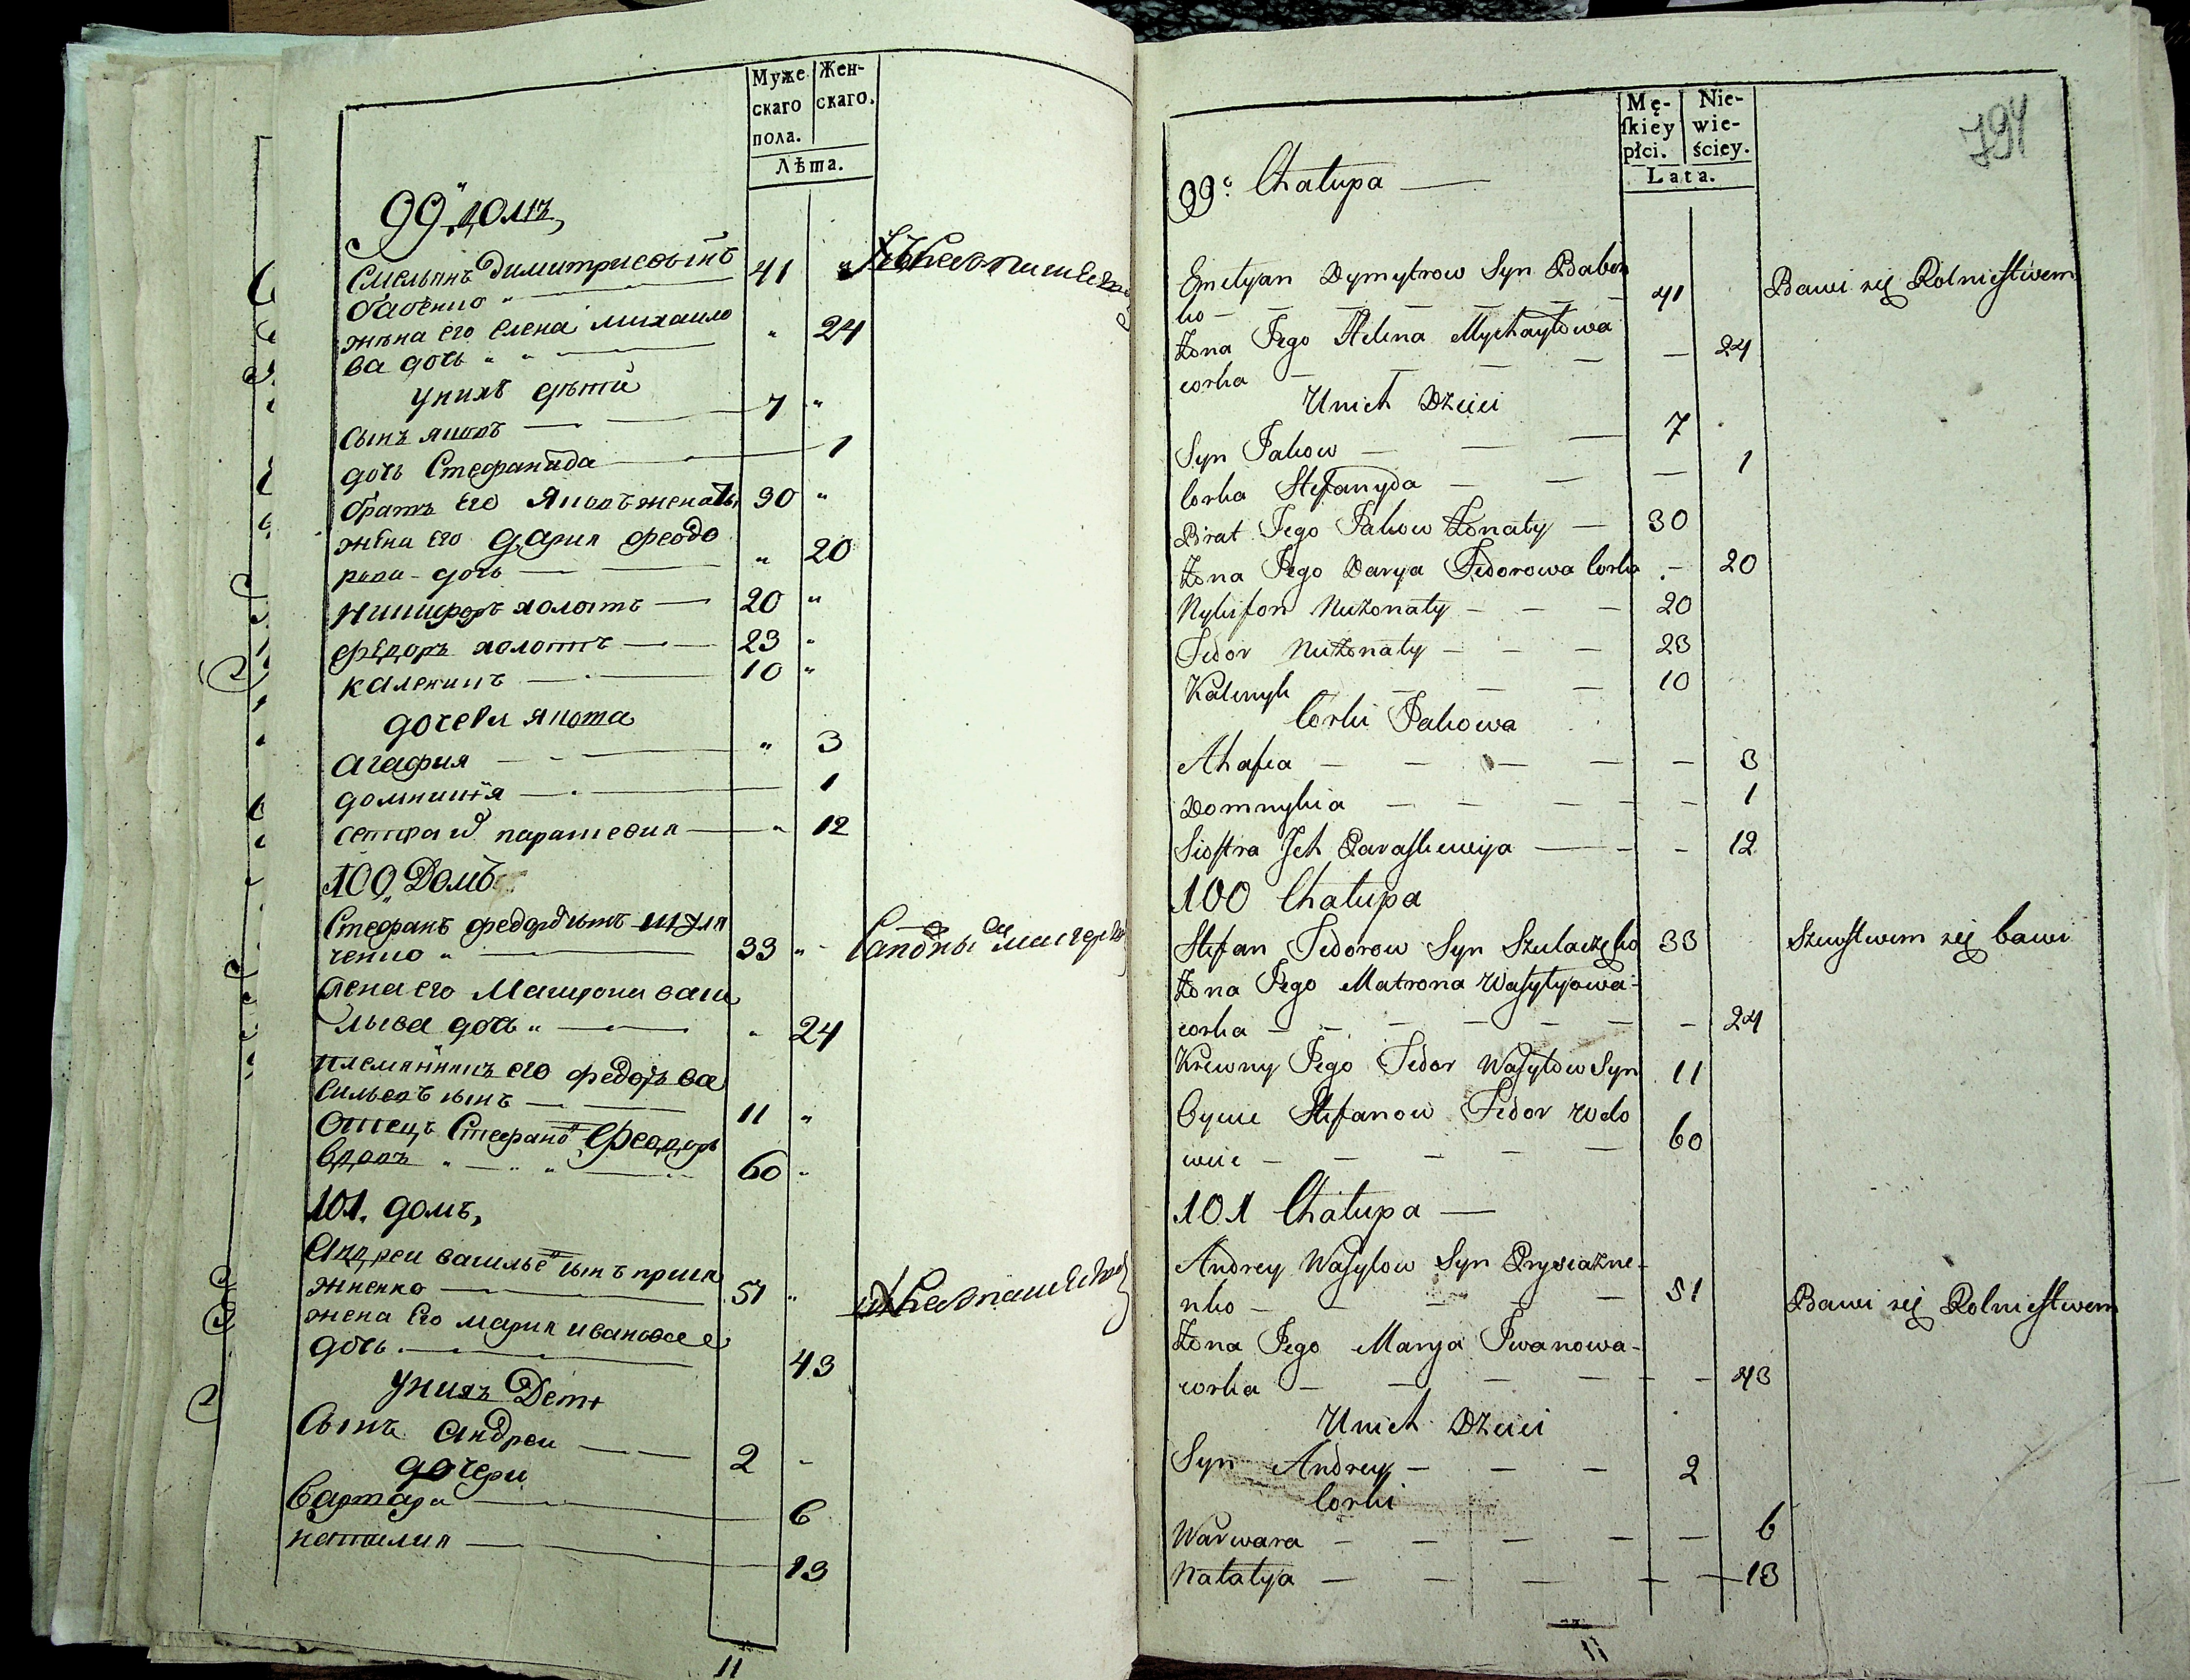 Муже
скаго
пола.
Жен-
скаго.
Лѣта.
99 домъ
Емельянъ Димитриевъ сынъ 41 "
бабенко "
жена его елена михаило
ва дочь " " " 24
у нихъ дѣти
Сынъ яковъ 7 "
дочь Стефанида 1
братъ Его яковъ женатъ 30 "
жена его дария феодо
рова дочь " 20
никифоръ холостъ 20 "
федоръ холостъ 23 "
каленикъ 10 "
дочери якова
агафия " 3
домникия 1
сестра парасковия " 12
100 Домъ
Стефанъ федоровъ сынъ шуля
ченко " 33 "
жена его Матрона васи
льева дочь " " 24
племянникъ его федоръ ва
сильевъ сынъ 11 "
отецъ Стефановъ Феодоръ
вдовъ " " " 60 "
101. домъ,
Андреи василье сынъ прися
жненко 51 "
жена его мария иванова
дочь. 43
у нихъ Дети
Сынъ андреи 2 "
дочери
варвара 6
наталия 13
11
Mę-
ſkiey
płci.
Nie-
wie-
ściey.
Lata.
794
99. Chałupa —
Emelyan Dymytrow Syn Baben
ko — 41 Bawi się Rolnictwem
Żona Jego Helena Mychayłowa
corka — 24
U nich Dzieci
Syn Jakow — 7
Corka Stefanyda — 1
Brat Jego Jakow Żonaty — 30
Żona Jego Darya Fedorowa Corka — 20
Nykifor Nieżonaty — 20
Fedor Nieżonaty — 23
Kalenyk — 10
Corki Jakowa
Ahafia — 3
Domnykia — 1
Siostra Ich Paraskewija — 12
100 Chałupa
Stefan Fedorow Syn Szulaczęko 33 Szewstwem się bawi
Żona Jego Matrona Wasylyowa-
corka — 24
Krewny Jego Fedor Wasylow Syn 11
Oyciec Stefanow Fedor wdo
wiec — 60
101 Chałupa —
Andrey Wasylow Syn Prysiażne-
nko — 51 Bawi się Rolnictwem
Żona Jego Marya Iwanowa-
corka — 43
U nich Dzieci
Syn Andrey — 2
Corki
Warwara — 6
Natalya — 13
11